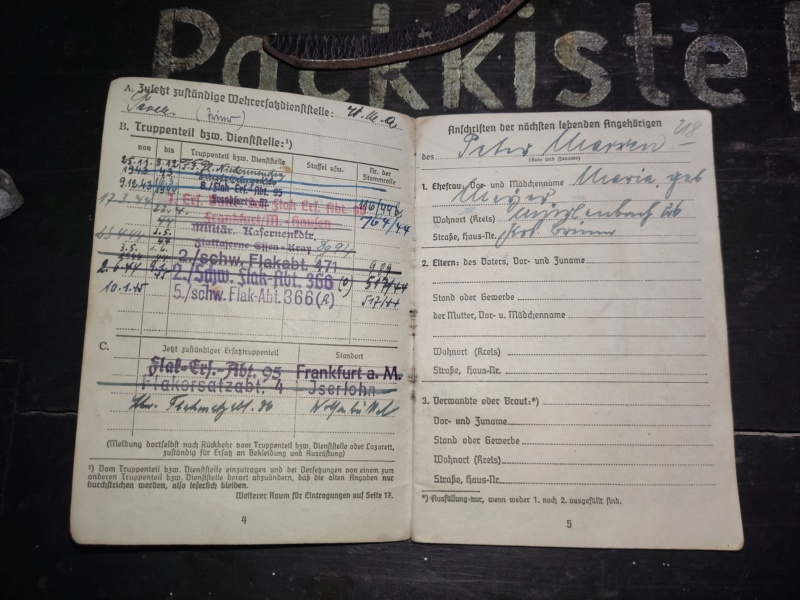 Packkiste
A. Zuletzt zuständige Wehrersatzdienststelle: W.M.A.
B. Truppenteil bzw. Dienststelle:¹)
von bis Truppenteil bzw. Dienststelle Staffel usw. Nr. der Stammrolle
25.11. 8.12.
1943 43
9.12.43 8./Flak-Ers.-Abt. 95
Frankfurt a. M.
17.3.44 Flak Ers. Abt. 764/44
Frankfurt/M.-Hausen
Militär. Kasernenkdtr.
Essen-Kray
3.5. 2./schw. Flakabt. 471
2.6.44 2./Schw. Flak-Abt. 366 517/44
10.1.45 5./schw. Flak-Abt. 366 517/44
C. Jetzt zuständiger Ersatztruppenteil Standort
Flak-Ers.-Abt. 95 Frankfurt a. M.
Flakersatzabt. 4 Iserlohn
Wolfenbüttel
(Meldung dortselbst nach Rückkehr vom Truppenteil bzw. Dienststelle oder Lazarett,
zuständig für Ersatz an Bekleidung und Ausrüstung)
¹) Vom Truppenteil bzw. Dienststelle einzutragen und bei Versetzungen von einem zum
anderen Truppenteil bzw. Dienststelle derart abzuändern, daß die alten Angaben nur
durchstrichen werden, also leserlich bleiben.
Weiterer Raum für Eintragungen auf Seite 17.
4
Anschriften der nächsten lebenden Angehörigen
des Peter
(Vor- und Zuname)
1. Ehefrau: Vor- und Mädchenname Maria geb
Meyer
Wohnort (Kreis)
Straße, Haus-Nr.
2. Eltern: des Vaters, Vor- und Zuname
Stand oder Gewerbe
der Mutter, Vor- u. Mädchenname
Wohnort (Kreis)
Straße, Haus-Nr.
3. Verwandte oder Braut:*)
Vor- und Zuname
Stand oder Gewerbe
Wohnort (Kreis)
Straße, Haus-Nr.
*) Ausfüllung nur, wenn weder 1. noch 2. ausgefüllt sind.
5